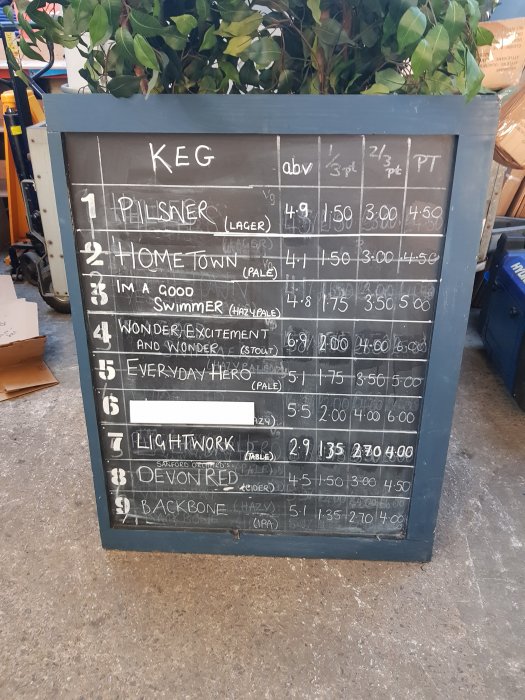 KEG abv 1/3 pt 2/3 pt PT
1 PILSNER (LAGER) 4.9 1.50 3.00 4.50
2 HOMETOWN (PALE) 4.1 1.50 3.00 4.50
3 IM A GOOD
SWIMMER (HAZY PALE) 4.8 1.75 3.50 5.00
4 WONDER, EXCITEMENT
AND WONDER (STOUT) 6.9 2.00 4.00 6.00
5 EVERYDAY HERO (PALE) 5.1 1.75 3.50 5.00
6 5.5 2.00 4.00 6.00
7 LIGHTWORK (TABLE) 2.9 1.35 2.70 4.00
8 DEVON RED (CIDER) 4.5 1.50 3.00 4.50
9 BACKBONE (IPA) 5.1 1.35 2.70 4.00